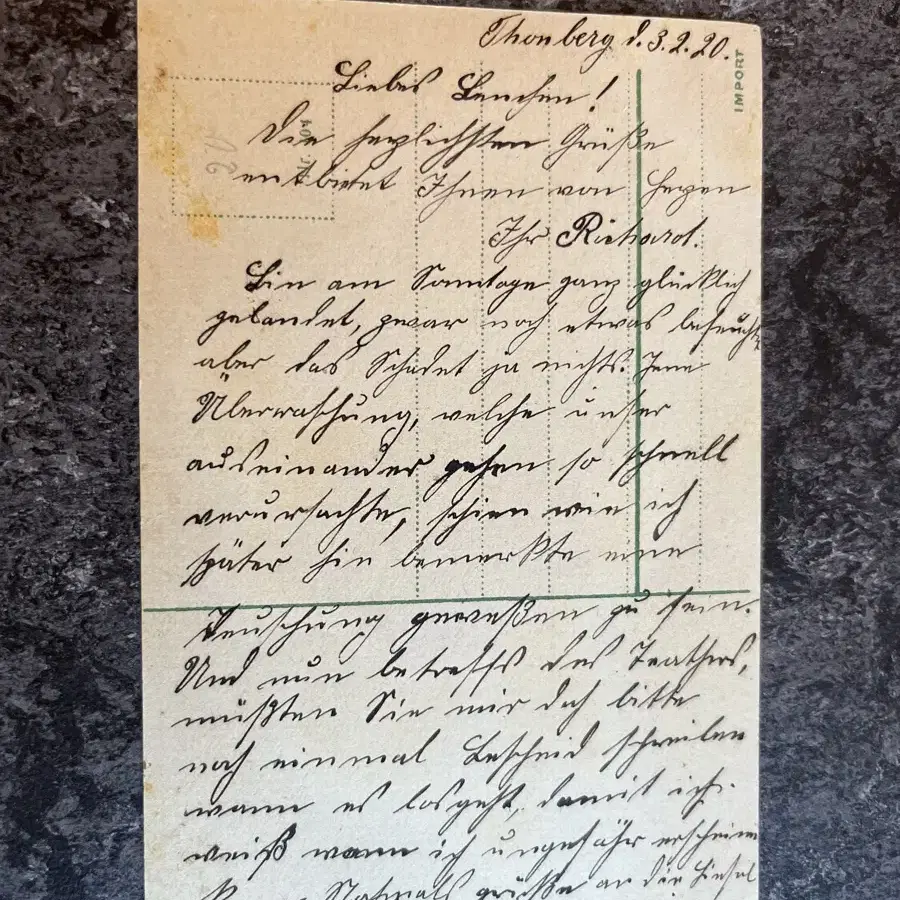 Thonberg d. 3.2.20.
IMPORT
Liebes Lenchen!
Die herzlichsten Grüße
entbietet Ihnen von Herzen
Ihr Richard.
Bin am Sonntage ganz glücklich
gelandet, zwar noch etwas befeucht
aber das Schadet ja nichts. Jene
Überraschung, welche unser
auseinander gehen so schnell
verursachte, schien wie ich
später hin bemerkte eine
Teuschung geweßen zu sein.
Und nun betreffs des Teathers,
müßten Sie mir doch bitte
noch einmal Bescheid schreiben
wann es losgeht, damit ich
weiß wann ich ungefähr erscheinen
grüße an die Liesel